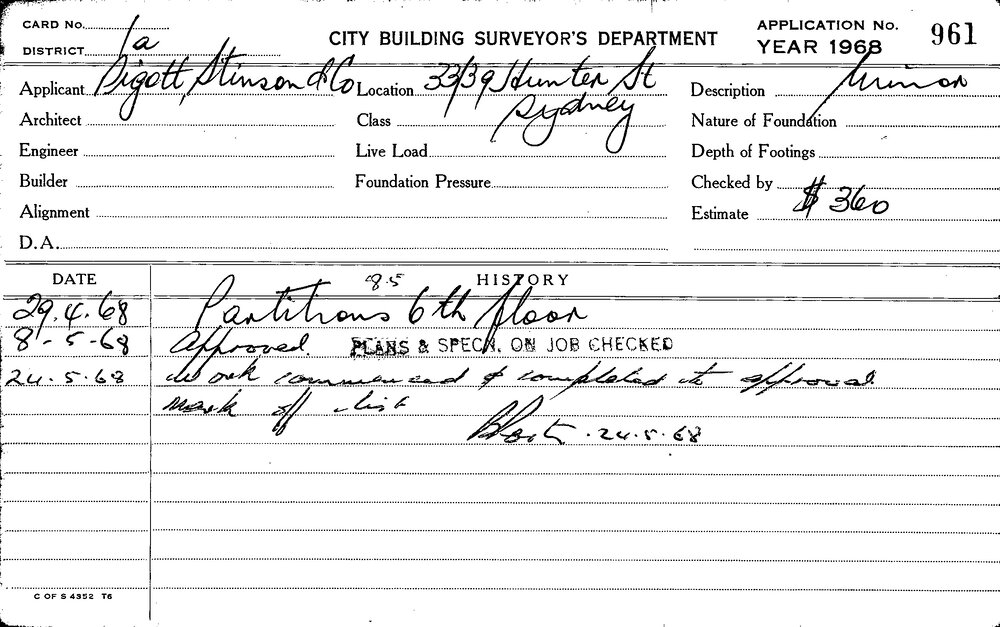 CARD No.
DISTRICT 1a
CITY BUILDING SURVEYOR'S DEPARTMENT
APPLICATION No. 961
YEAR 1968
Applicant Pigott, Stinson & Co Location 33/39 Hunter St Description Minor
Architect Class Sydney Nature of Foundation
Engineer Live Load Depth of Footings
Builder Foundation Pressure Checked by
Alignment Estimate $ 360
D.A.
DATE 8.5 HISTORY
29.4.68 Partitions 6th floor
8-5-68 Approved. PLANS & SPECN. ON JOB CHECKED
24.5.68 Work commenced & completed to approval
mark off list
24.5.68
C OF S 4352 T6